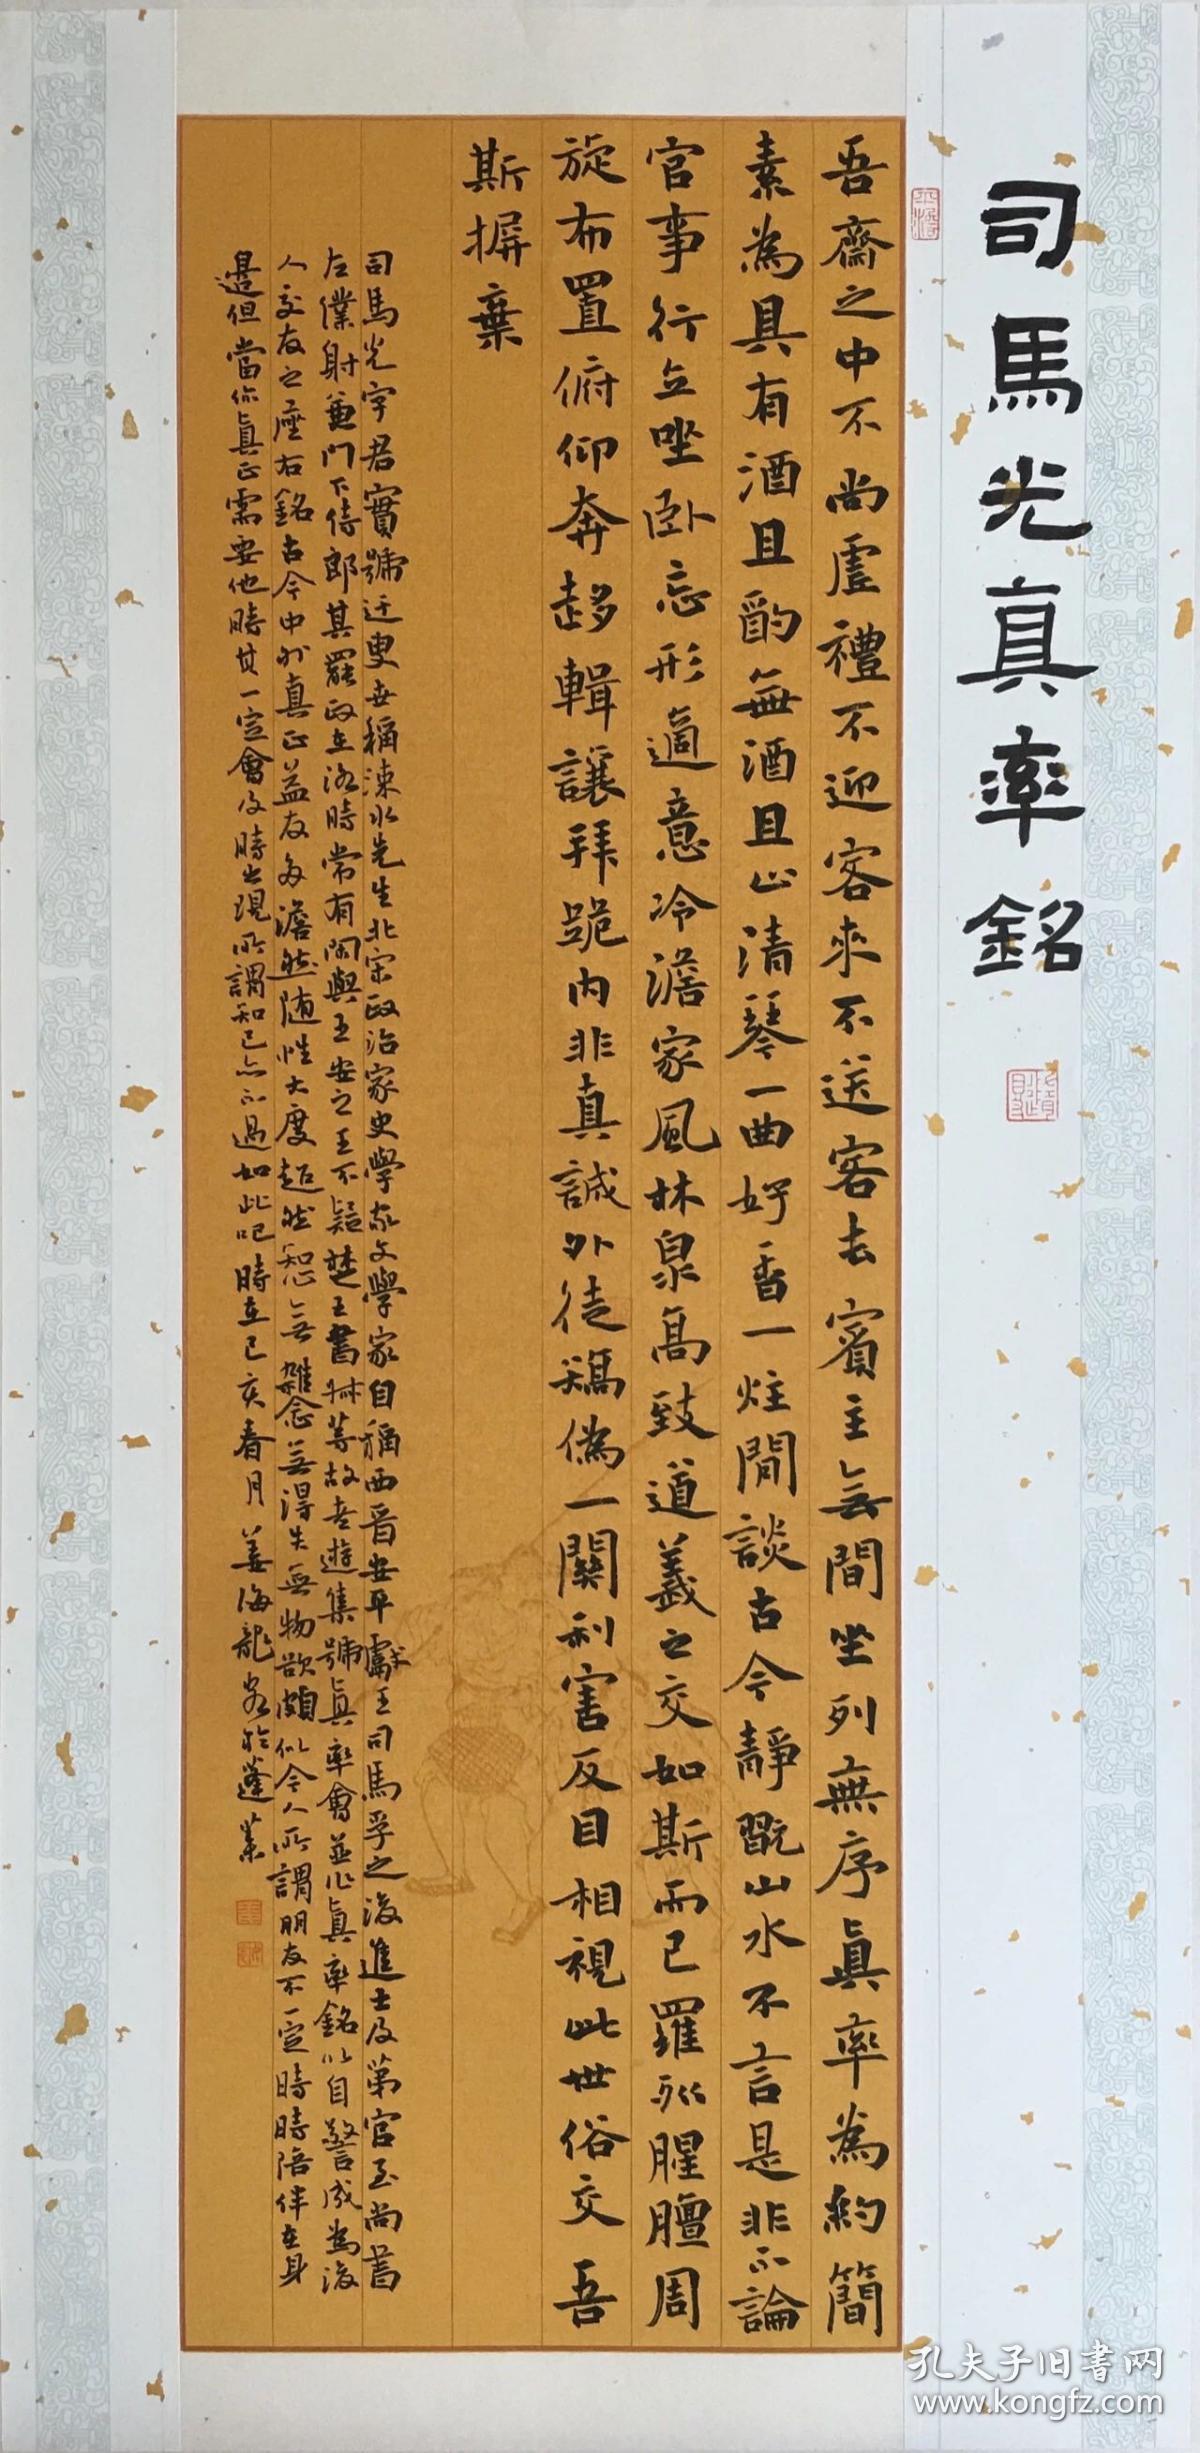 司馬光真率銘
吾齋之中不尚虛禮不迎客來不送客去賓主無間坐列無序真率為約簡
素為具有酒且酌無酒且止清琴一曲好香一炷閒談古今靜翫山水不言是非不論
官事行立坐臥忘形適意冷澹家風林泉高致道義之交如斯而已羅列腥膻周
旋布置俯仰奔趍輯讓拜跪內非真誠外徒矯偽一關利害反目相視此世俗交吾
斯摒棄
司馬光字君實號迂叟世稱涑水先生北宋政治家史學家文學家自稱西晉安平獻王司馬孚之後進士及第官至尚書
左僕射兼門下侍郎其罷政在洛時常有閑與王安之王不疑楚王書林等故老遊集號真率會並作真率銘以自警成為後
人交友之座右銘古今中外真正益友多澹然隨性大度超然恕無雜念無得失無物欲頗似今人所謂朋友不一定時時陪伴在身
邊但當你真正需要他時其一定會及時出現所謂知己亦不過如此吧時在己亥春月姜海龍書於蓬萊
孔夫子旧书网
www.kongfz.com